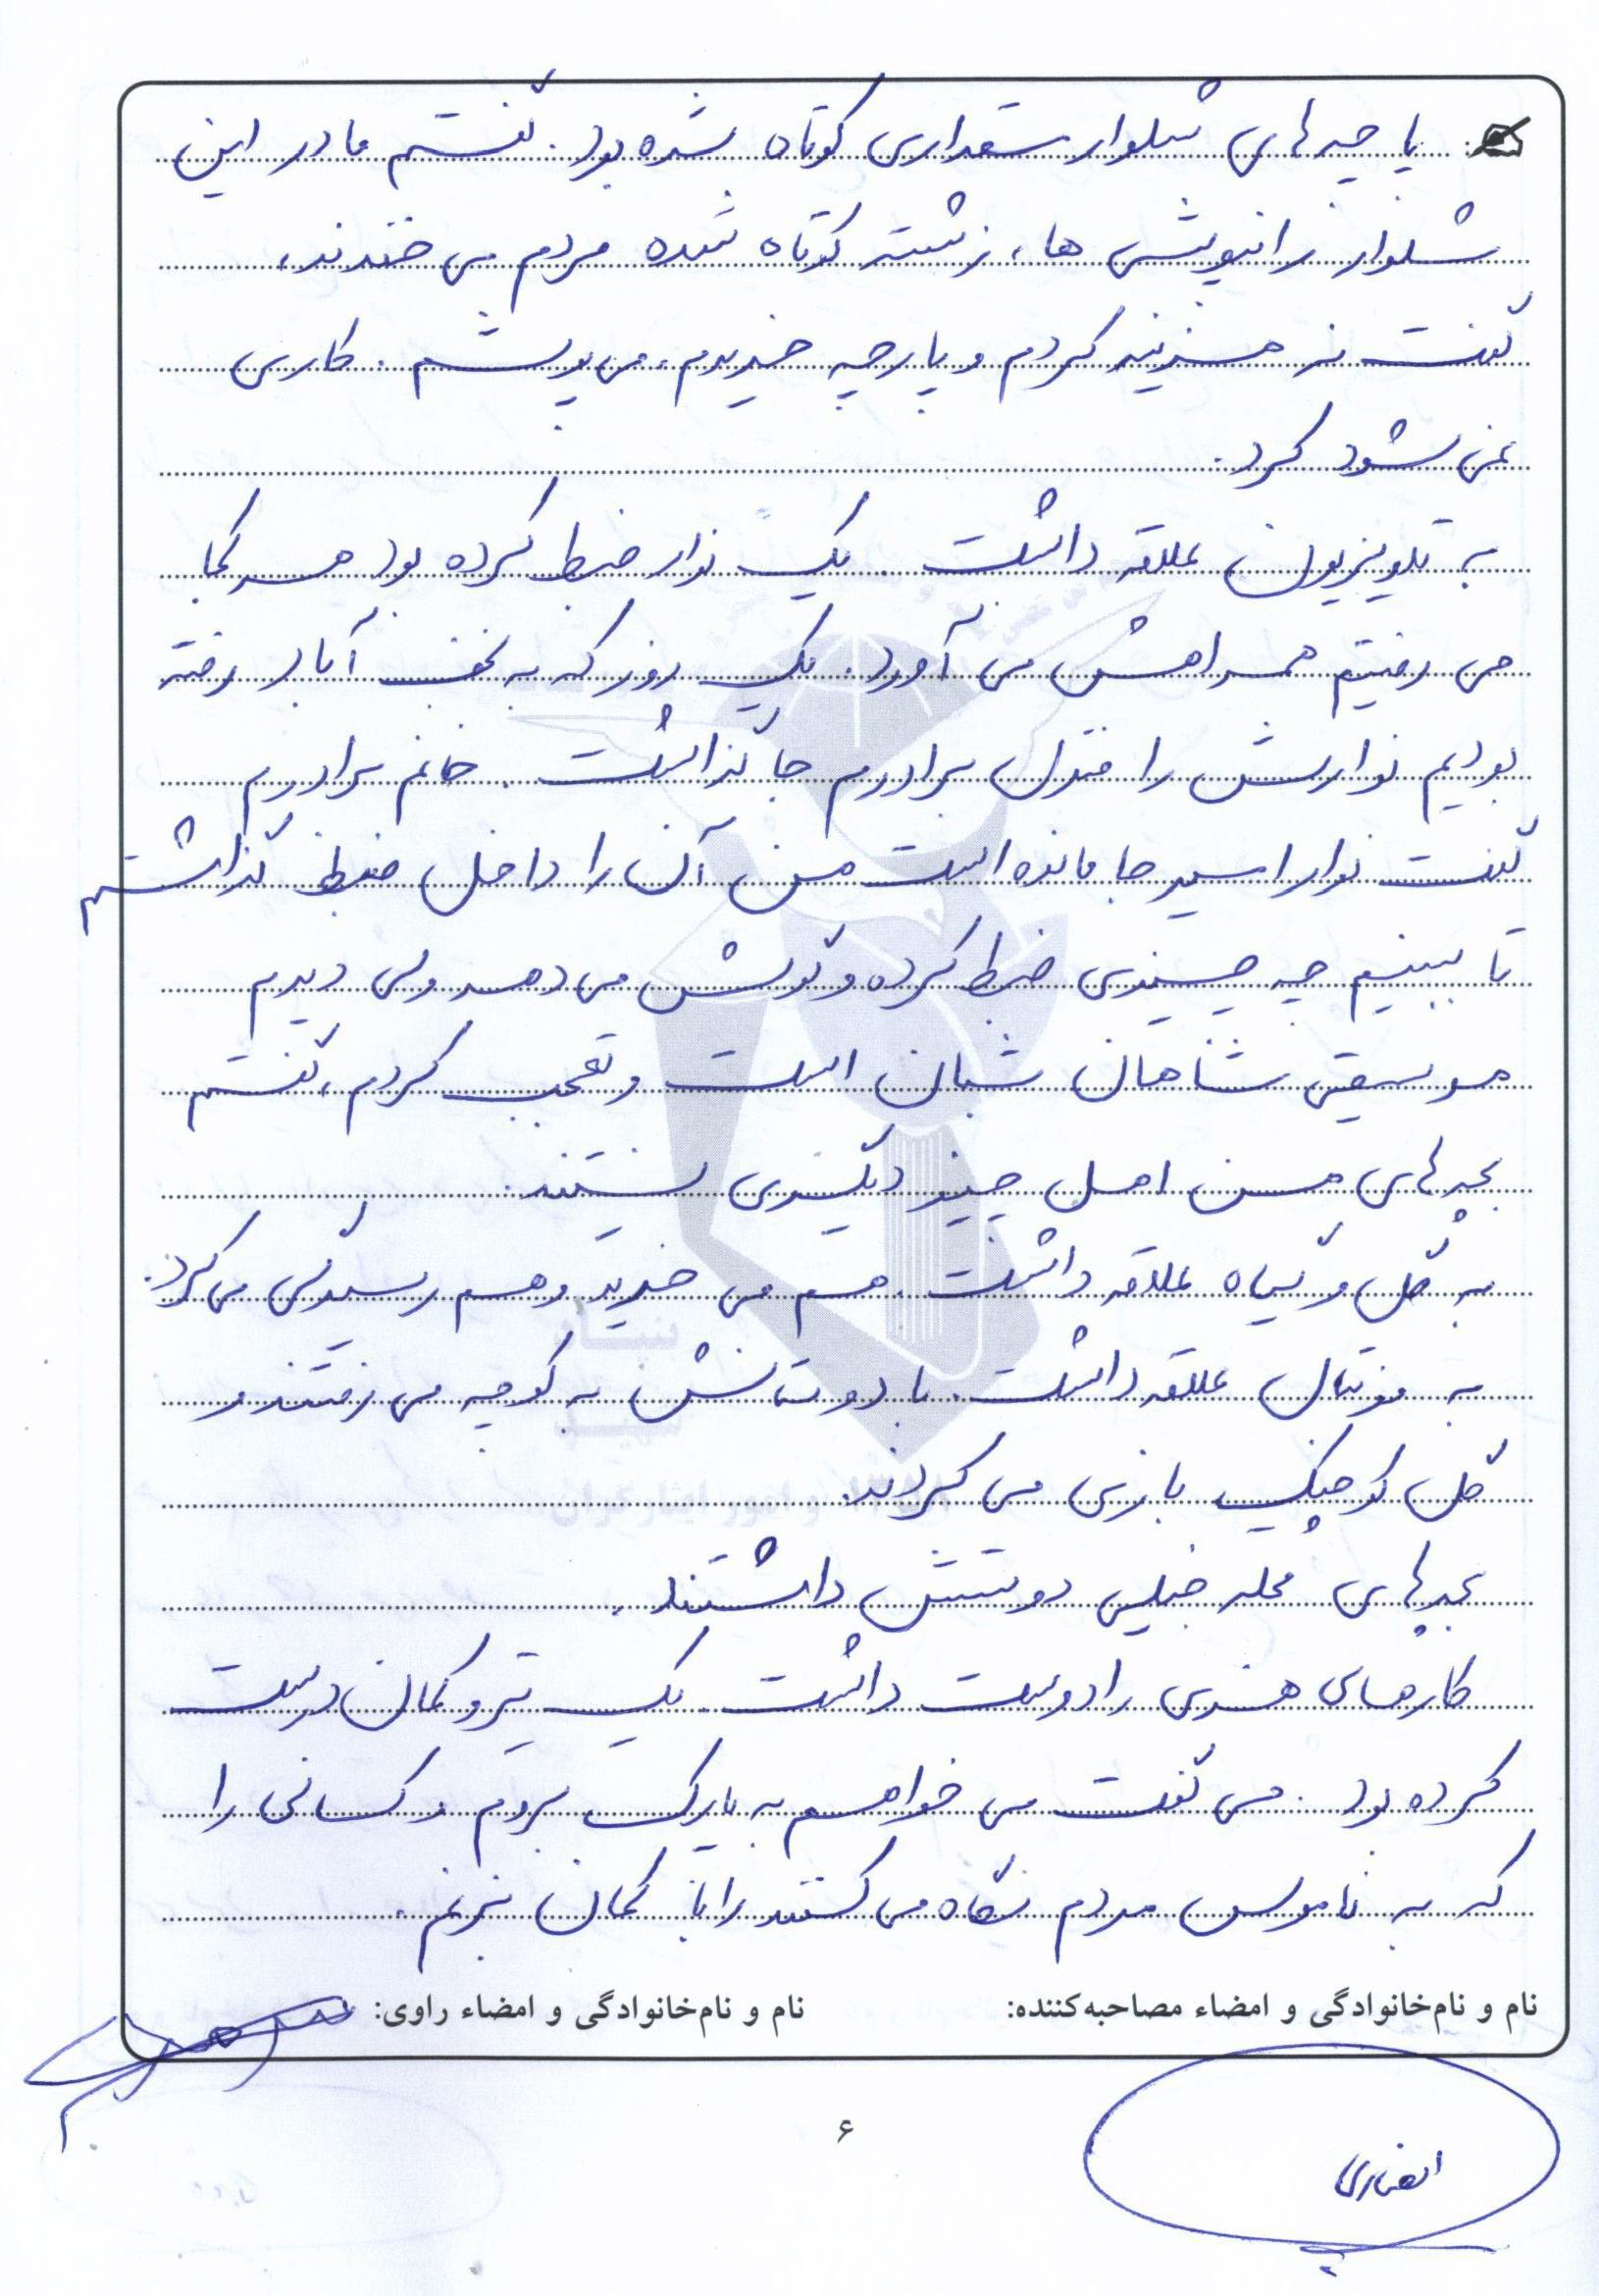 پاچه‌های شلوار مقداری کوتاه شده بود. گفتم مادر این
شلوار را نپوشی ها، زشته کوتاه شده مردم می خندند،
گفت نه هزینه کردم و پارچه خریدم، می پوشم. کاری
نمی شود کرد.
به تلویزیون علاقه داشت. یک نوار ضبط کرده بود هر کجا
می رفتیم همراهش می آورد. یک روز که به نجف آباد رفته
بودیم نوارش را منزل برادرم جا گذاشت. خانم برادرم
گفت نوار امیر جا مانده است من آن را داخل ضبط گذاشتم
تا ببینم چه چیزی ضبط کرده و گوش می دهد ولی دیدم
موسیقی شاهان شبان است و تعجب کردم، گفتم
بچه‌های من اهل چیز دیگری نیستند.
به گل و گیاه علاقه داشت. هم می خرید و هم رسیدگی می کرد.
به فوتبال علاقه داشت. با دوستانش به کوچه می رفتند و
گل کوچیک بازی می کردند.
بچه‌های محله خیلی دوستش داشتند.
کارهای هنری را دوست داشت. یک تیر و کمان درست
کرده بود. می گفت می خواهم به پارک بروم و کسانی را
که به ناموس مردم نگاه می کنند را با کمان بزنم.
نام و نام‌خانوادگی و امضاء مصاحبه‌کننده: نام و نام‌خانوادگی و امضاء راوی:
۶
انصاری